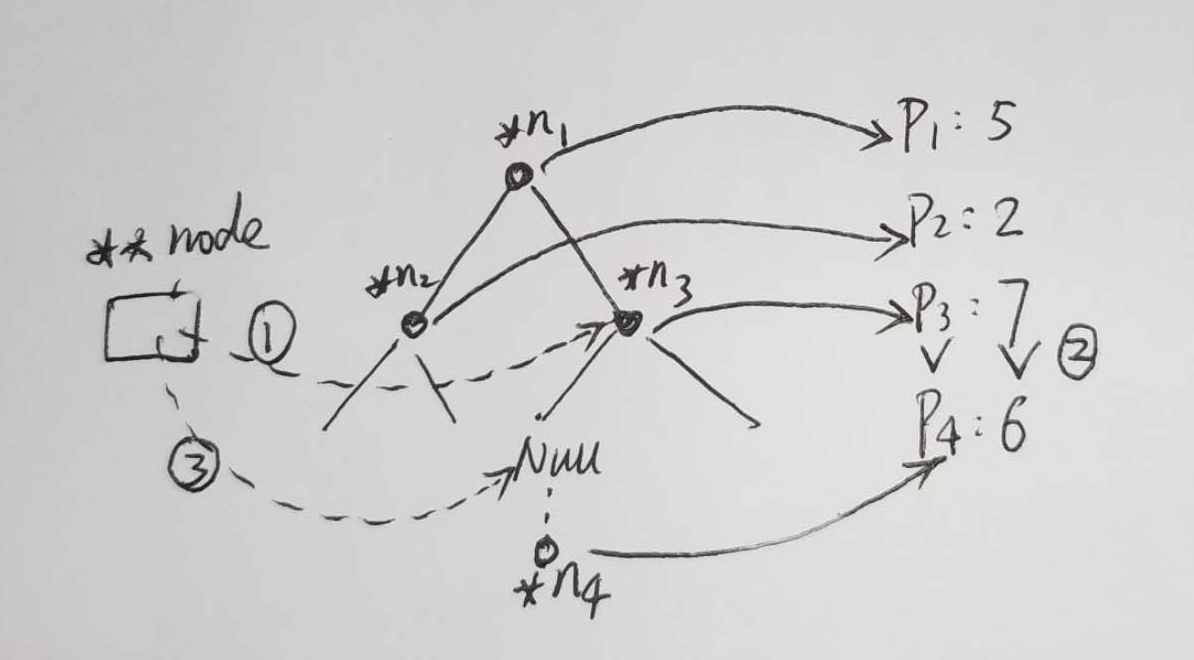 *n₁
P₁: 5
** node
P₂: 2
*n₂
*n₃
P₃: 7
①
②
P₄: 6
③
Null
*n₄